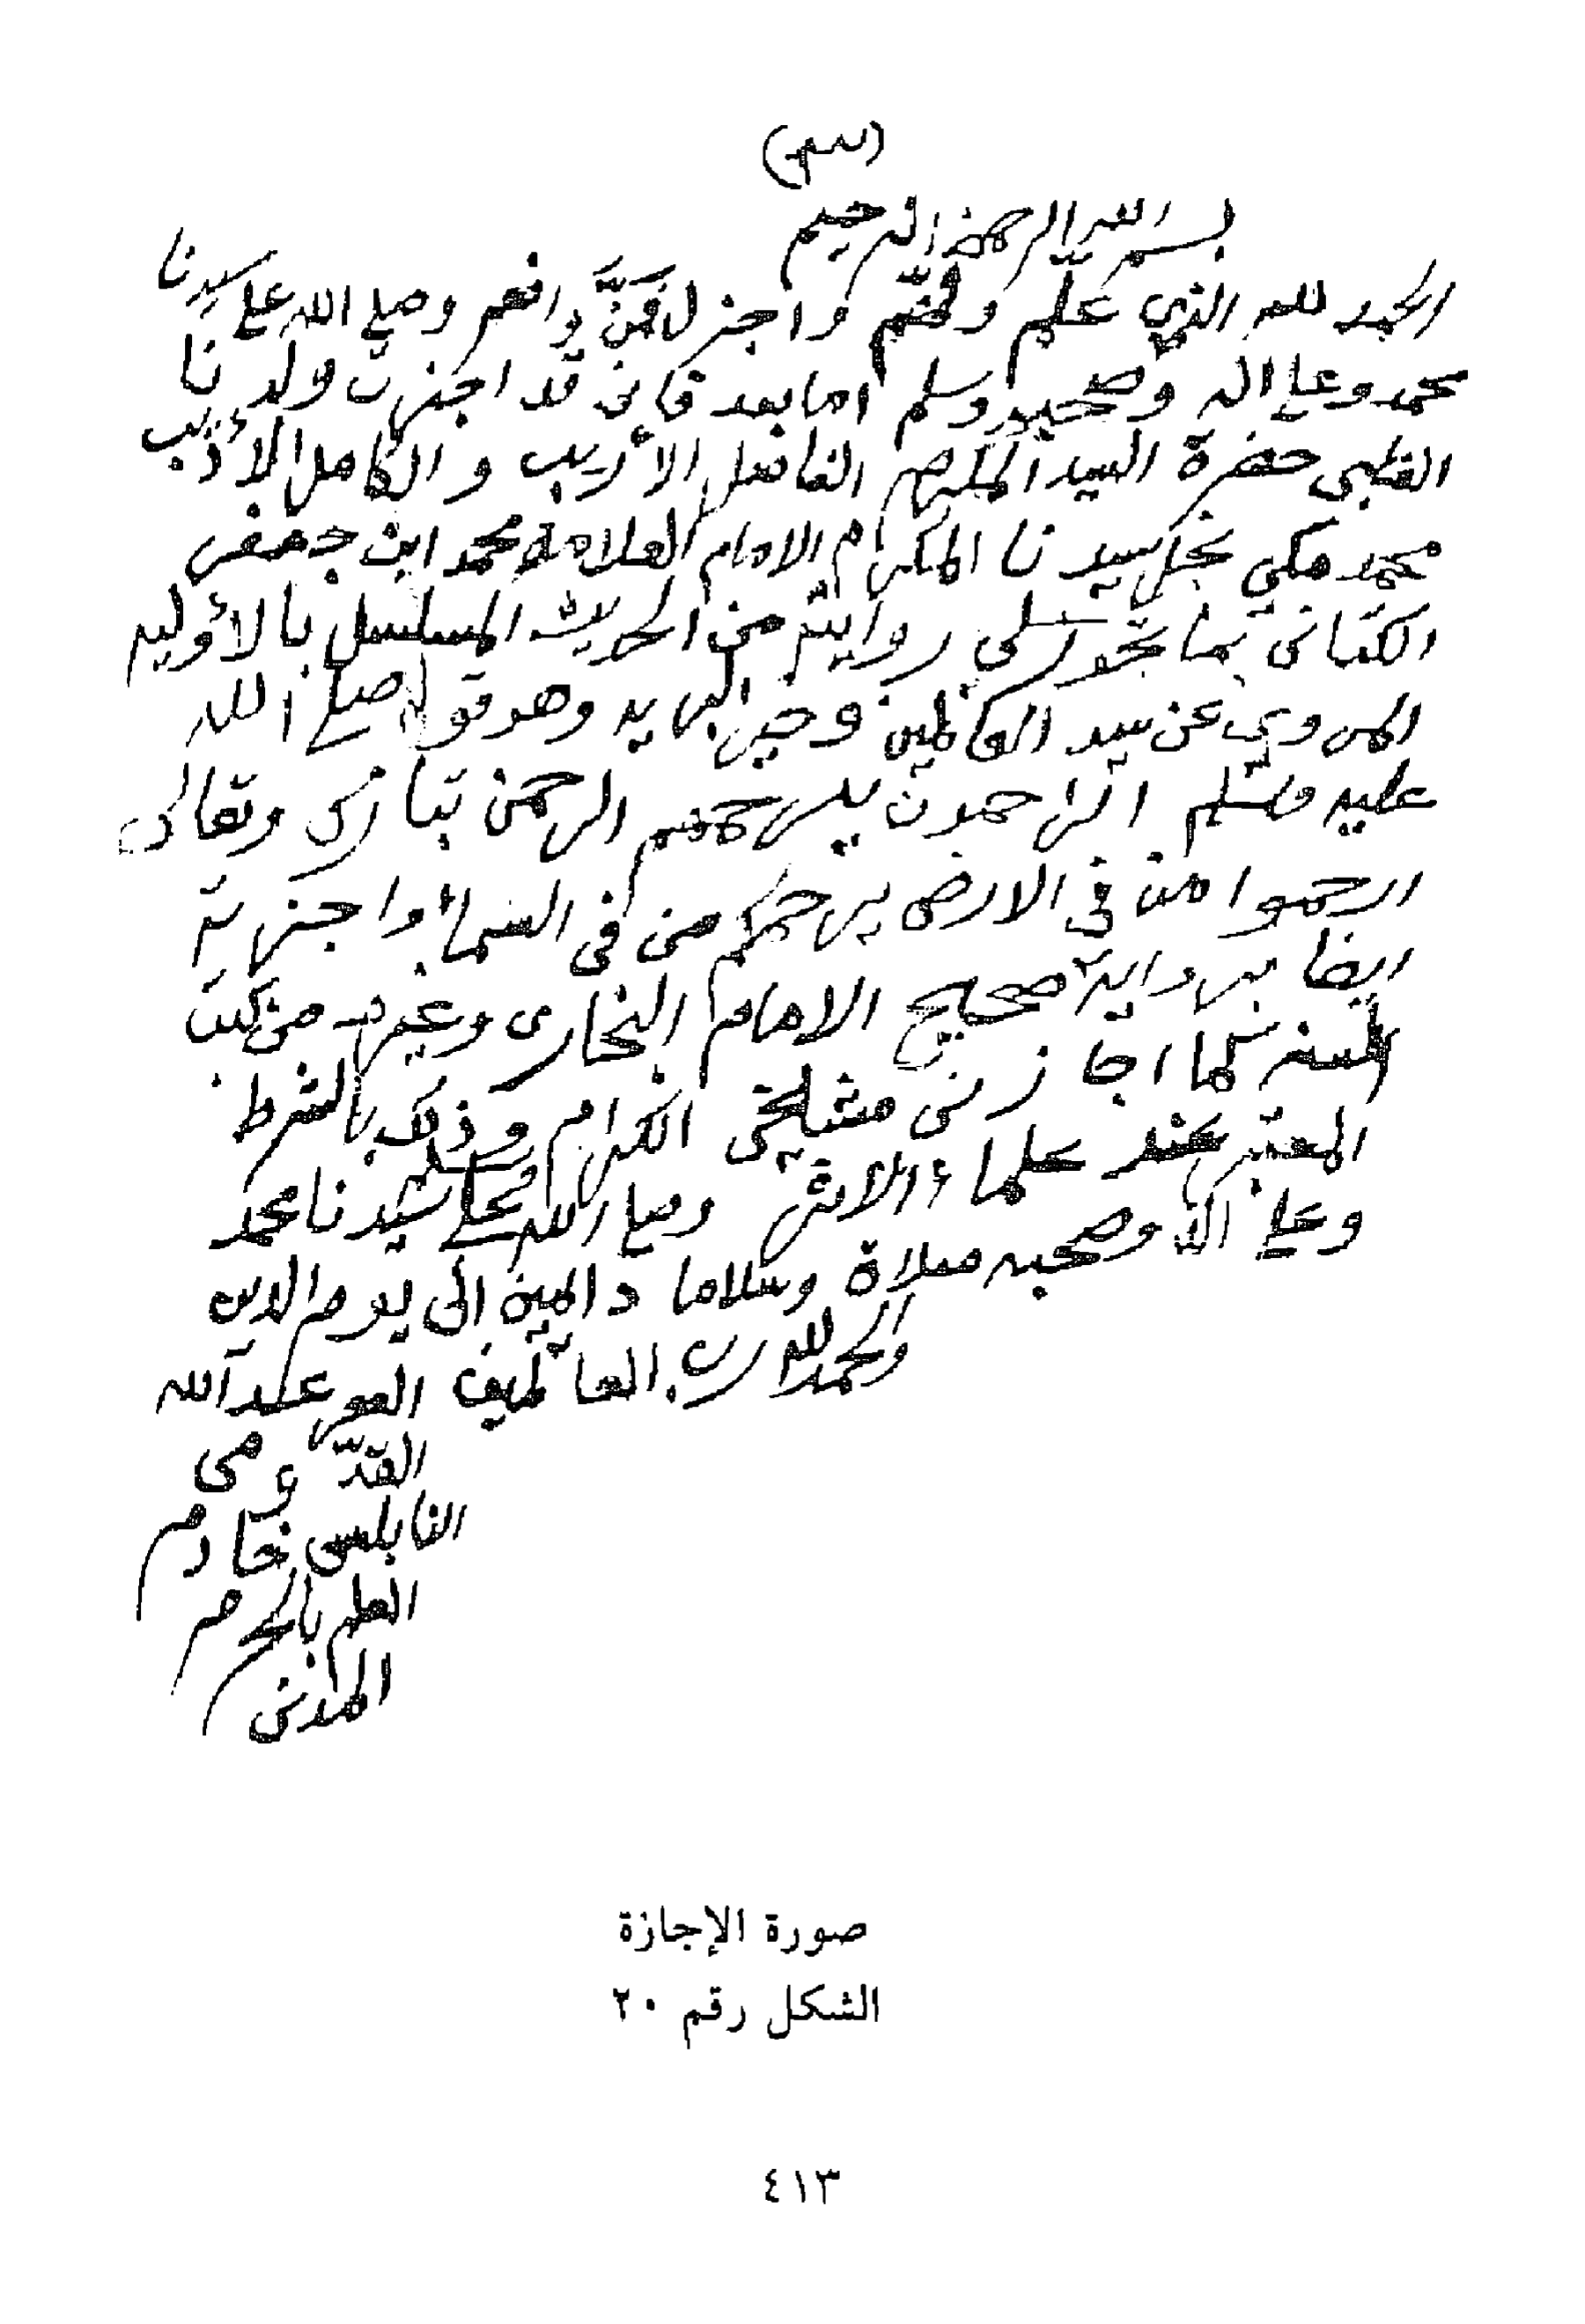 بسم الله الرحمن الرحيم
الحمد لله الذي علّم وفهّم واجزل فمَنَّ وانعم وصلى الله على سيدنا
محمد وعلى اله وصحبه وسلم اما بعد فانى قد اجزت ولدنا
القلبى حضرة السيد المكرم الفاضل الأريب والكامل الأديب
محمد مكي نجل سيدنا المكرم الامام العلامة محمد ابن جعفر
الكتانى بما تجوز لي روايته من الحديث المسلسل بالأوليه
المروي عن سيد العالمين وخير البريه وهو قوله صلى الله
عليه وسلم الراحمون يرحمهم الرحمن تبارك وتعالى
ارحموا من في الارض يرحمكم من في السماء واجزته
ايضا برواية صحيح الامام البخارى وغيره من كتب
السنه كما اجازنى مشايخي الكرام وذلك بالشرط
المعتبر عند علماء الاثر وصلى الله وسلم على سيدنا محمد
وعلى اله وصحبه صلاة وسلاما دائمين الى يوم الدين
والحمد لله رب العالمين الفقير عبد الله
القدّومى
النابلسى خادم
العلم بالحرم
المدنى
صورة الإجازة
الشكل رقم ٢٠
٤١٣